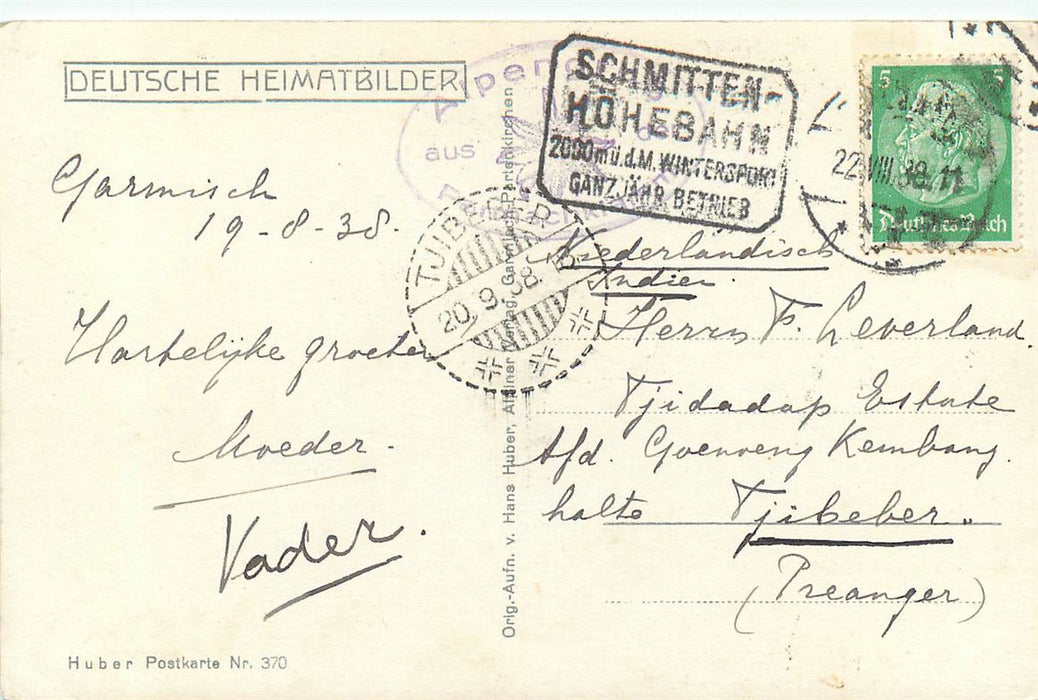 DEUTSCHE HEIMATBILDER
Alpeng
aus
SCHMITTEN-
HÖHEBAHN
2000 m ü.d.M. WINTERSPORT
GANZJÄHR. BETRIEB
22.VIII.38.11
5 5
Deutsches Reich
Garmisch
19-8-38.
TJIBEBER
20.9.38
Hartelijke groeten
Moeder.
Vader.
Niederlandisch
Indien.
Herrn F. Leverland.
Tjidadap Estate
Afd. Goenoeng Kembang.
halte Tjibeber.
(Preanger)
Orig.-Aufn. v. Hans Huber, Alpiner Verlag, Garmisch-Partenkirchen
Huber Postkarte Nr. 370